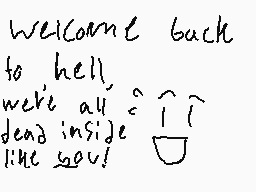 welcome back
to hell,
we're all
dead inside
like you!